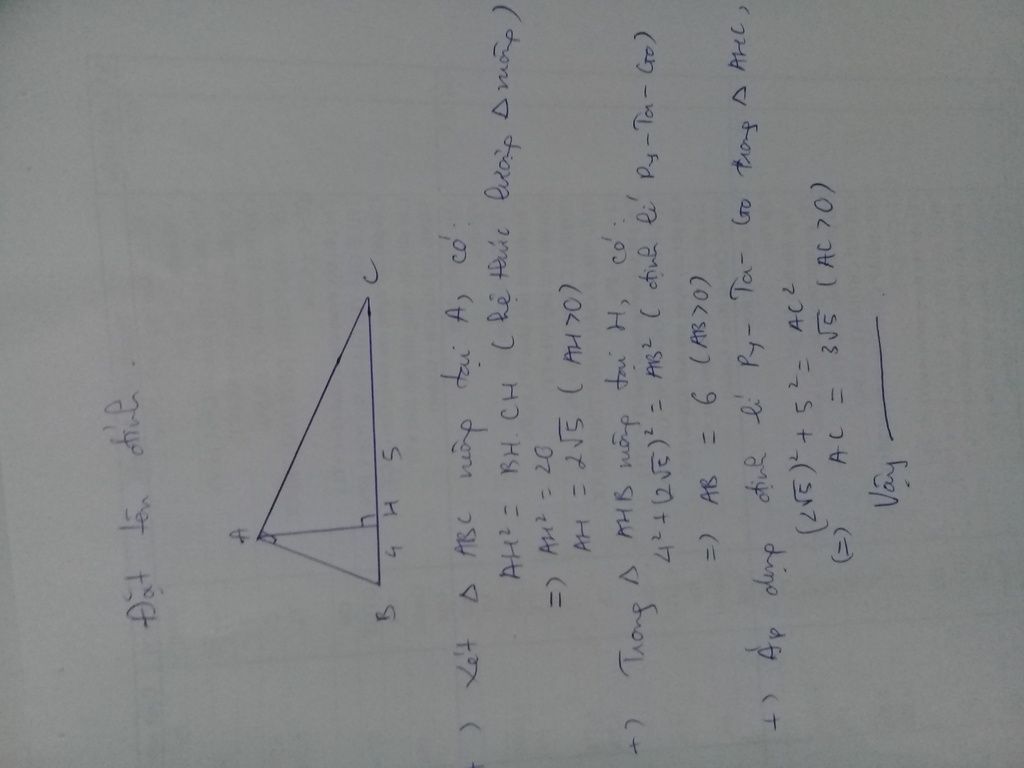 Đặt tên đỉnh.
A
B 4 H 5 C
+) Xét Δ ABC vuông tại A, có:
AH² = BH.CH (hệ thức lượng Δ vuông)
=) AH² = 20
AH = 2√5 (AH>0)
+) Trong Δ AHB vuông tại H, có:
4² + (2√5)² = AB² (định lí Py-Ta-Go)
=) AB = 6 (AB>0)
+) Áp dụng định lí Py-Ta-Go trong Δ AHC,
(2√5)² + 5² = AC²
(=) AC = 3√5 (AC>0)
Vậy